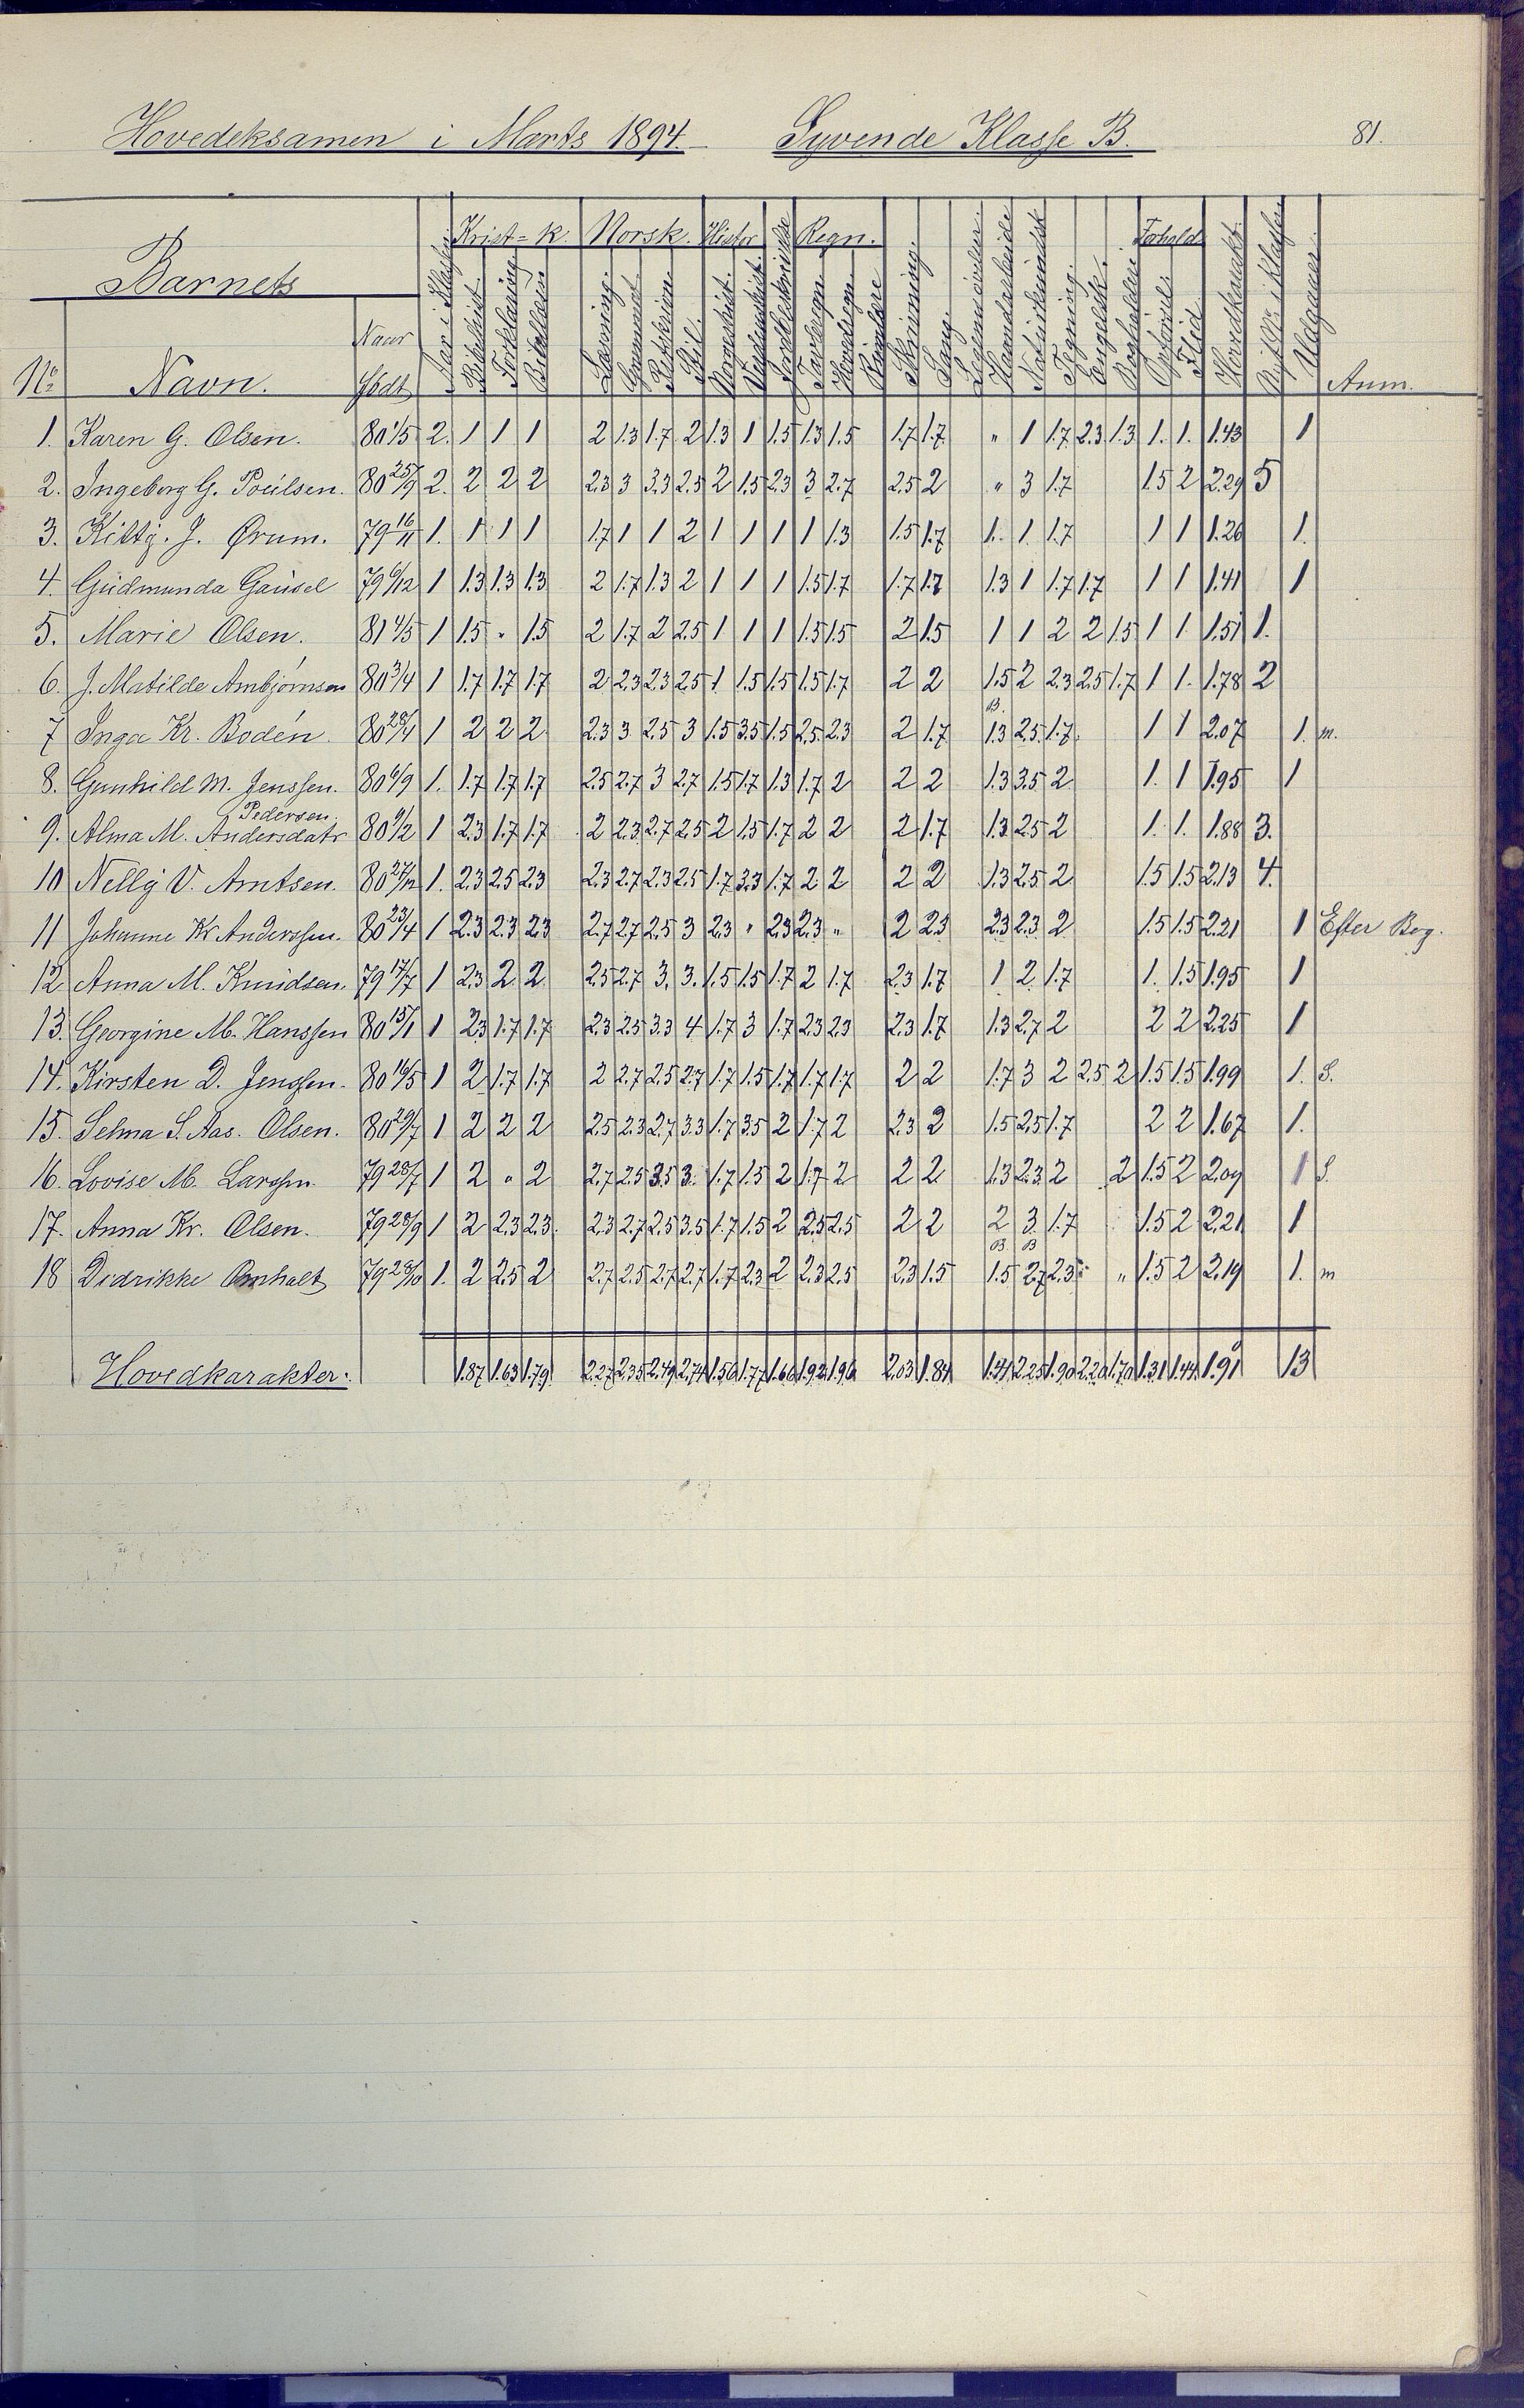 Hovedeksamen i Marts 1894. Syvende Klasse B. 81.
Krist-k. Norsk. Histor Regn. Forhold
Barnets
No Navn. Naar født Aar i Klassen Bibelhist. Forklaring Bibellæsn Læsning. Grammat. Retskrivn. Stil. Norgeshist. Verdenshist. Jordbeskrivelse Tavleregn. Hovedregn. Skrivning. Sang. Legemsøvelser. Haandarbeide Naturkundsk Tegning. Engelsk. Bogholderi Opførsel. Flid. Hovedkarakt. Nyt No i Klassen Udgaaet. Anm.
1. Karen G. Olsen. 80 1/5 2. 1 1 1 2 1.3 1.7 2 1.3 1 1.5 1.3 1.5 1.7 1.7 " 1 1.7 2.3 1.3 1. 1. 1.43 1
2. Ingeborg G. Poulsen. 80 25/9 2. 2 2 2 2.3 3 3.3 2.5 2 1.5 2.3 3 2.7 2.5 2 " 3 1.7 1.5 2 2.29 5
3. Kitty. J. Ørum. 79 16/11 1. 1 1 1 1.7 1 1 2 1 1 1 1 1.3 1.5 1.7 1. 1 1.7 1 1 1.26 1.
4. Gudmunda Gausel 79 6/12 1 1.3 1.3 1.3 2 1.7 1.3 2 1 1 1 1.5 1.7 1.7 1.7 1.3 1 1.7 1.7 1 1 1.41 1
5. Marie Olsen. 81 4/5 1 1.5 " 1.5 2 1.7 2 2.5 1 1 1 1.5 1.5 2 1.5 1 1 2 2 1.5 1 1 1.51 1.
6. J. Matilde Ambjørnsen 80 3/4 1 1.7 1.7 1.7 2 2.3 2.3 2.5 1 1.5 1.5 1.5 1.7 2 2 1.5 2 2.3 2.5 1.7 1 1. 1.78 2
B.
7 Inga Kr. Bodén. 80 28/4 1 2 2 2 2.3 3 2.5 3 1.5 3.5 1.5 2.5 2.3 2 1.7 1.3 2.5 1.7 1 1 2.07 1. m.
8. Gunhild M. Jenssen. 80 6/9 1. 1.7 1.7 1.7 2.5 2.7 3 2.7 1.5 1.7 1.3 1.7 2 2 2 1.3 3.5 2 1. 1 1.95 1
Pedersen.
9. Alma M. Andersdatr 80 9/2 1 2.3 1.7 1.7 2 2.3 2.7 2.5 2 1.5 1.7 2 2 2 1.7 1.3 2.5 2 1. 1. 1.88 3.
10 Nelly V. Arntsen. 80 27/12 1. 2.3 2.5 2.3 2.3 2.7 2.3 2.5 1.7 3.3 1.7 2 2 2 2 1.3 2.5 2 1.5 1.5 2.13 4.
11 Johanne Kr Anderssen. 80 23/4 1 2.3 2.3 2.3 2.7 2.7 2.5 3 2.3 " 2.3 2.3 " 2 2.3 2.3 2.3 2 1.5 1.5 2.21 1 Efter Beg.
12 Anna M. Knudsen. 79 17/7 1 2.3 2 2 2.5 2.7 3. 3. 1.5 1.5 1.7 2 1.7 2.3 1.7 1 2 1.7 1. 1.5 1.95 1
13. Georgine M. Hanssen 80 15/1 1 2.3 1.7 1.7 2.3 2.5 3.3 4 1.7 3 1.7 2.3 2.3 2.3 1.7 1.3 2.7 2 2 2 2.25 1
14. Kirsten D. Jenssen. 80 16/5 1 2 1.7 1.7 2 2.7 2.5 2.7 1.7 1.5 1.7 1.7 1.7 2 2 1.7 3 2 2.5 2 1.5 1.5 1.99 1. S.
15. Selma S. Aas. Olsen. 80 29/7 1 2 2 2 2.5 2.3 2.7 3.3 1.7 3.5 2 1.7 2 2.3 2 1.5 2.5 1.7 2 2 1.67 1.
16. Lovise M. Larssen. 79 28/7 1 2 " 2 2.7 2.5 3.5 3. 1.7 1.5 2 1.7 2 2 2 1.3 2.3 2 2 1.5 2 2.09 1 S.
17. Anna Kr. Olsen. 79 28/9 1 2 2.3 2.3 2.3 2.7 2.5 3.5 1.7 1.5 2 2.5 2.5 2 2 2 3 1.7 1.5 2 2.21 1
B. B
18 Didrikke Omholt 79 28/10 1. 2 2.5 2 2.7 2.5 2.7 2.7 1.7 2.3 2 2.3 2.5 2.3 1.5 1.5 2.7 2.3 " " 1.5 2 2.19 1. m
Hovedkarakter: 1.87 1.63 1.79 2.27 2.35 2.49 2.74 1.56 1.77 1.66 1.92 1.96 2.03 1.84 1.41 2.25 1.90 2.20 1.70 1.31 1.44 1.91 13